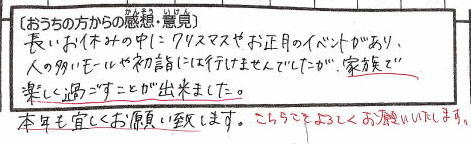 〔おうちの方からの感想・意見〕
かんそう いけん
長いお休みの中にクリスマスやお正月のイベントがあり、
人の多いモールや初詣には行けませんでしたが、家族で
楽しく過ごすことが出来ました。
本年も宜しくお願い致します。こちらこそよろしくお願いいたします。